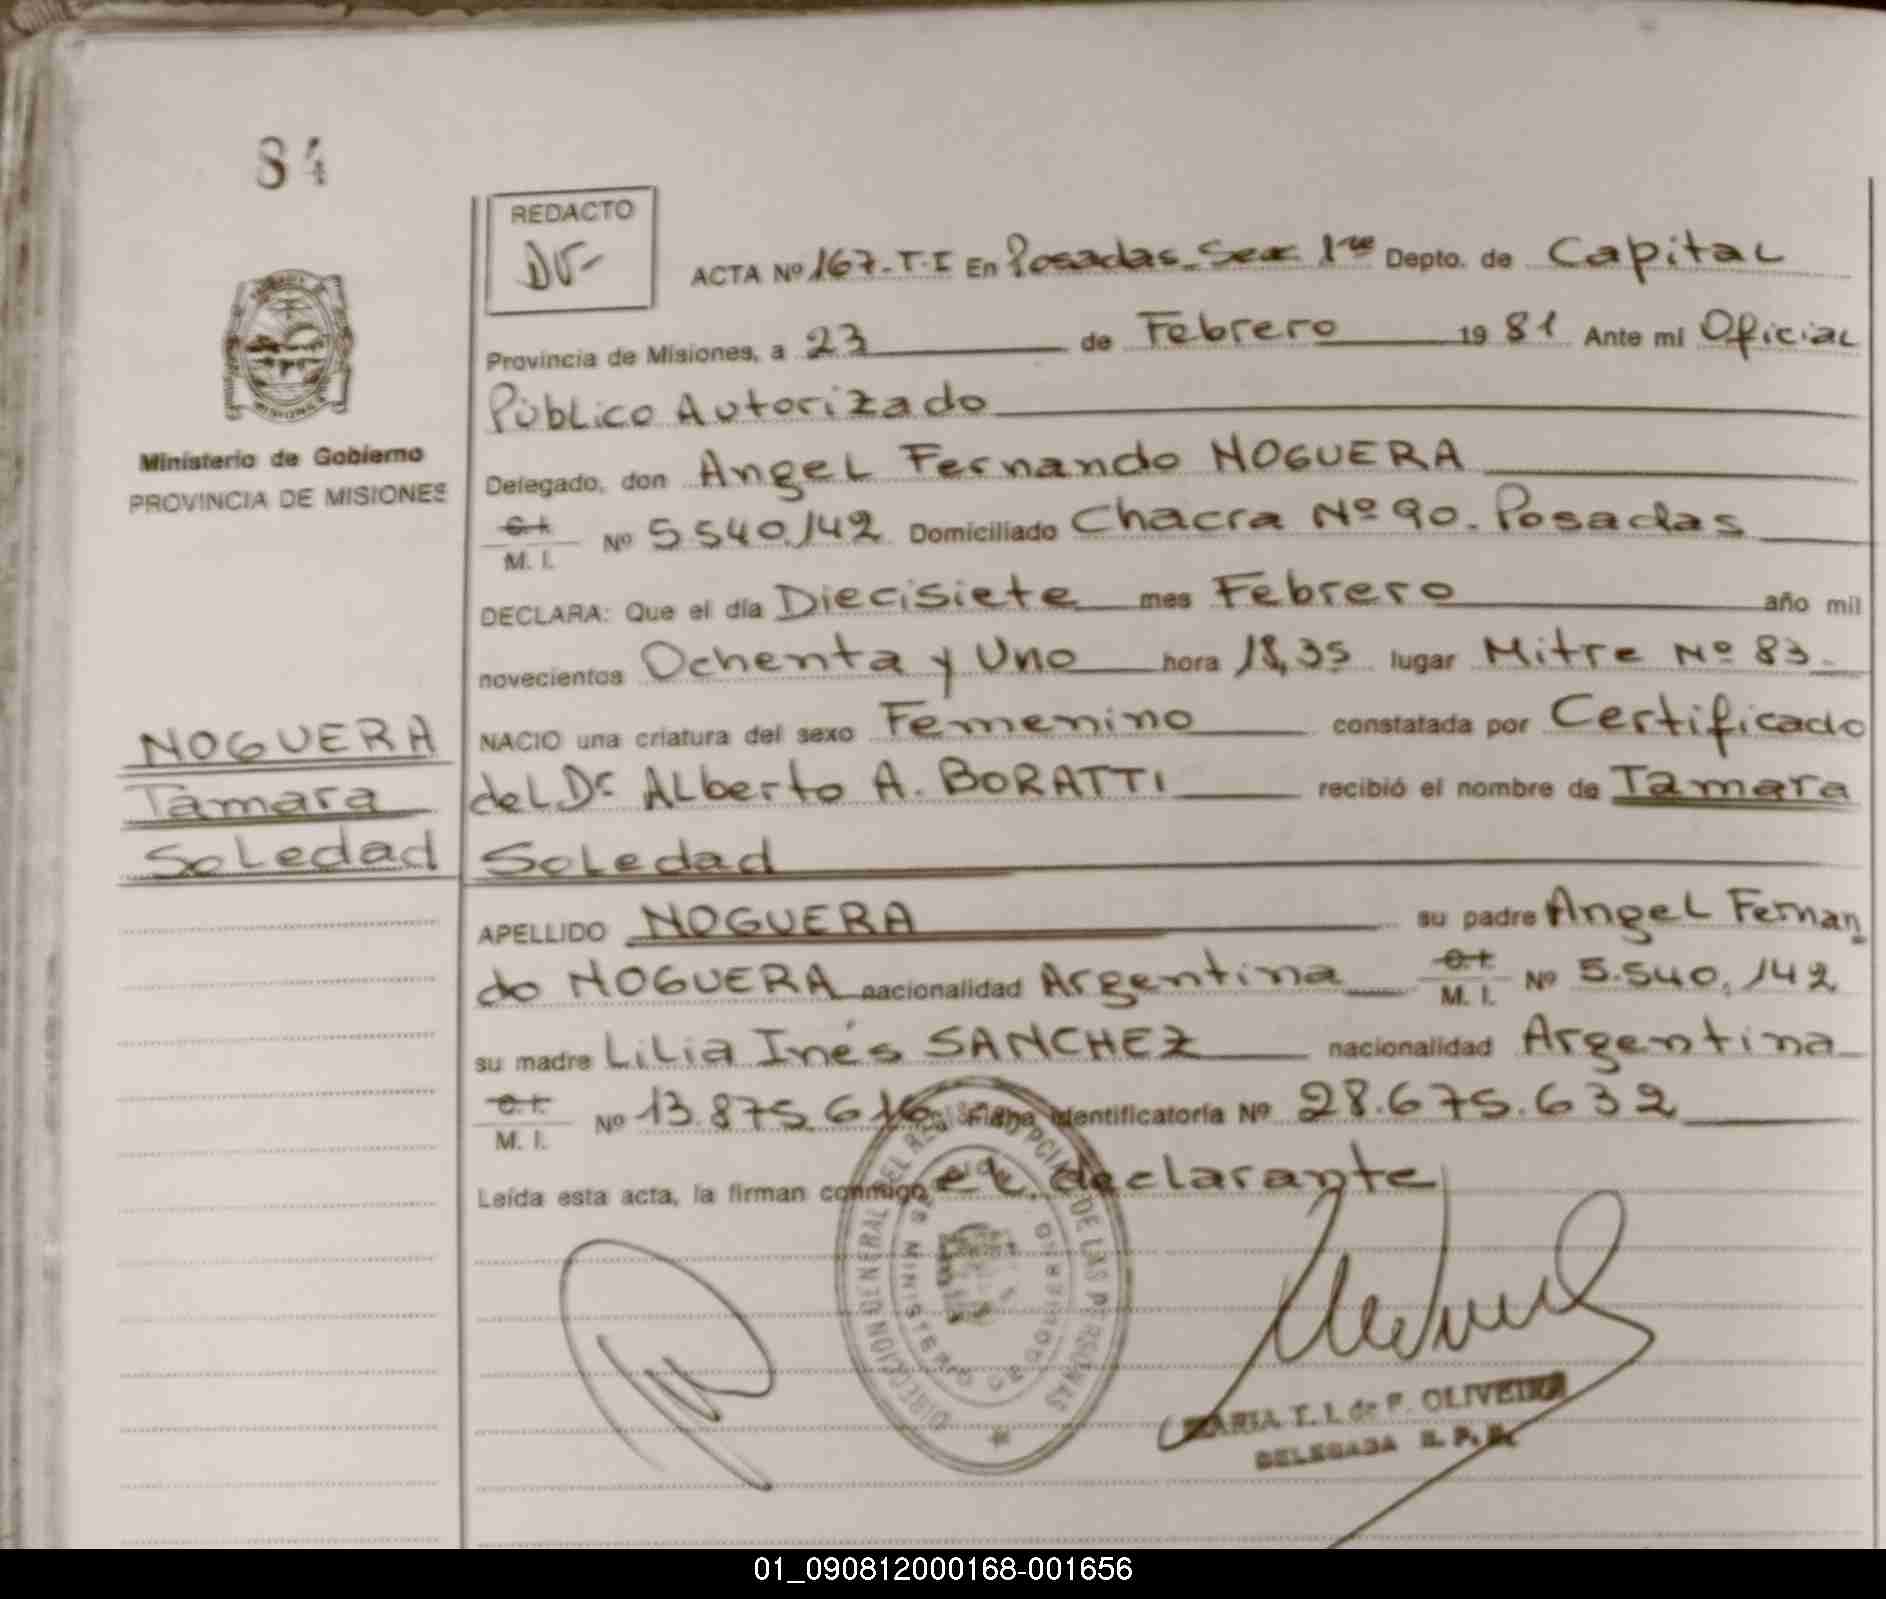 84
REDACTO
ACTA Nº 167-T-I En Posadas-Sec 1ra Depto. de Capital
Provincia de Misiones, a 23 de Febrero 19 81 Ante mí Oficial
Público Autorizado
Delegado, don Angel Fernando NOGUERA
C.I.
M. I. Nº 5 540.142 Domiciliado Chacra Nº 90. Posadas
DECLARA: Que el día Diecisiete mes Febrero año mil
novecientos Ochenta y Uno hora 18,35 lugar Mitre Nº 83
NACIO una criatura del sexo Femenino constatada por Certificado
del Dr ALberto A. BORATTI recibió el nombre de Tamara
Soledad
APELLIDO NOGUERA su padre Angel Fernan
do NOGUERA nacionalidad Argentina C.I. M. I. Nº 5.540.142
su madre Lilia Inés SANCHEZ nacionalidad Argentina
C.I.
M. I. Nº 13.875.616 Ficha identificatoria Nº 28.675.632
Leída esta acta, la firman conmigo el declarante
Ministerio de Gobierno
PROVINCIA DE MISIONES
NOGUERA
Tamara
Soledad
DIRECCION GENERAL DEL REGISTRO PCIAL. DE LAS PERSONAS
MINISTERIO DE GOBIERNO
MARIA T. I. de F. OLIVEIRA
DELEGADA R. P. P.
01_090812000168-001656